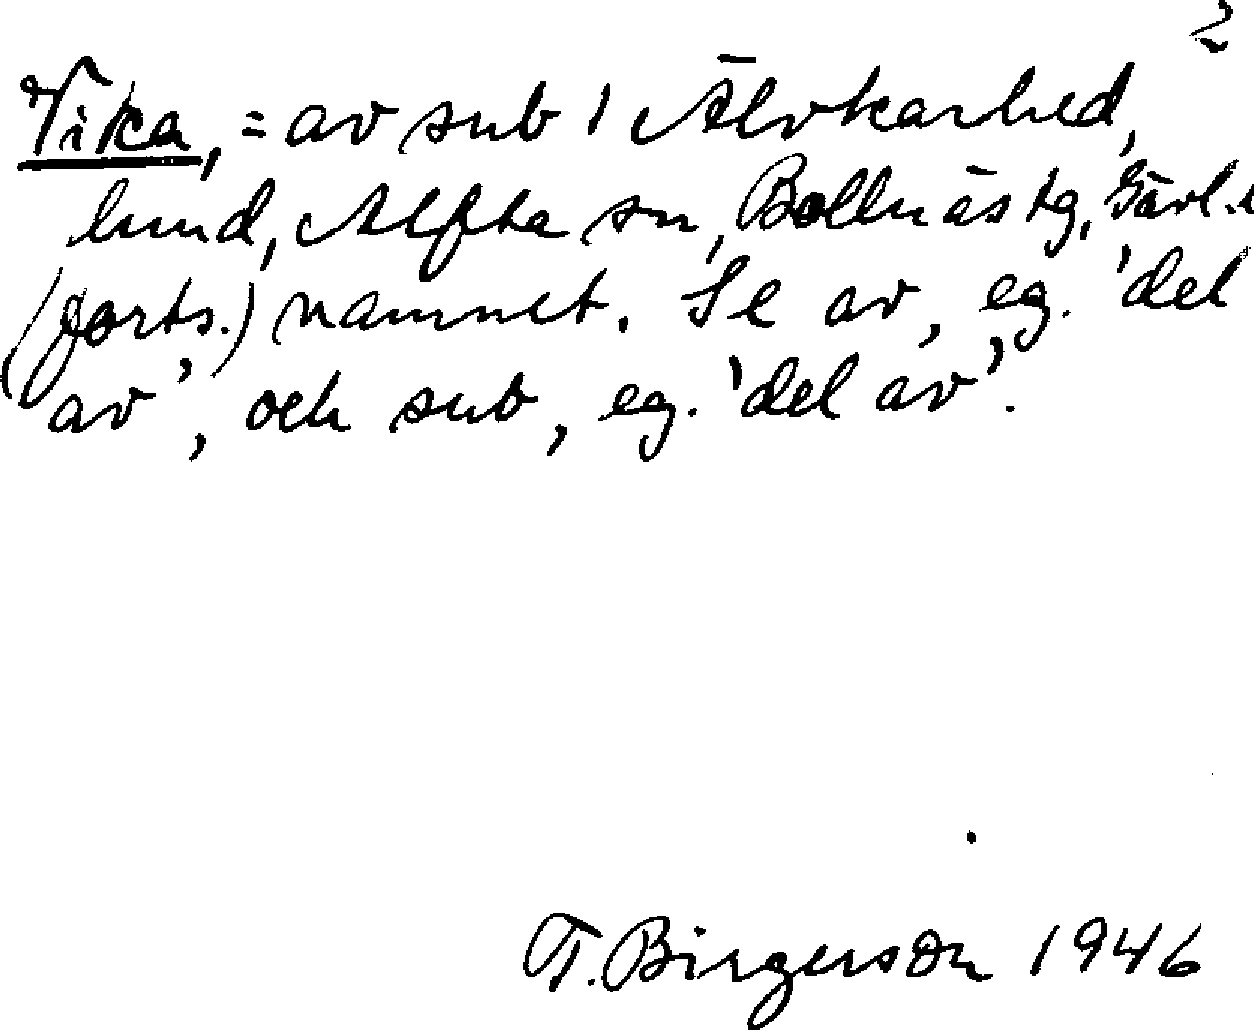 2
Vika, = av sub 1 Älvkarhed,
lund, Alfta sn, Bollnäs tg, Gävl. l
(forts.) namnet. Se av, eg. 'del
av', och sub, eg. 'del av'.
T. Birgerson 1946